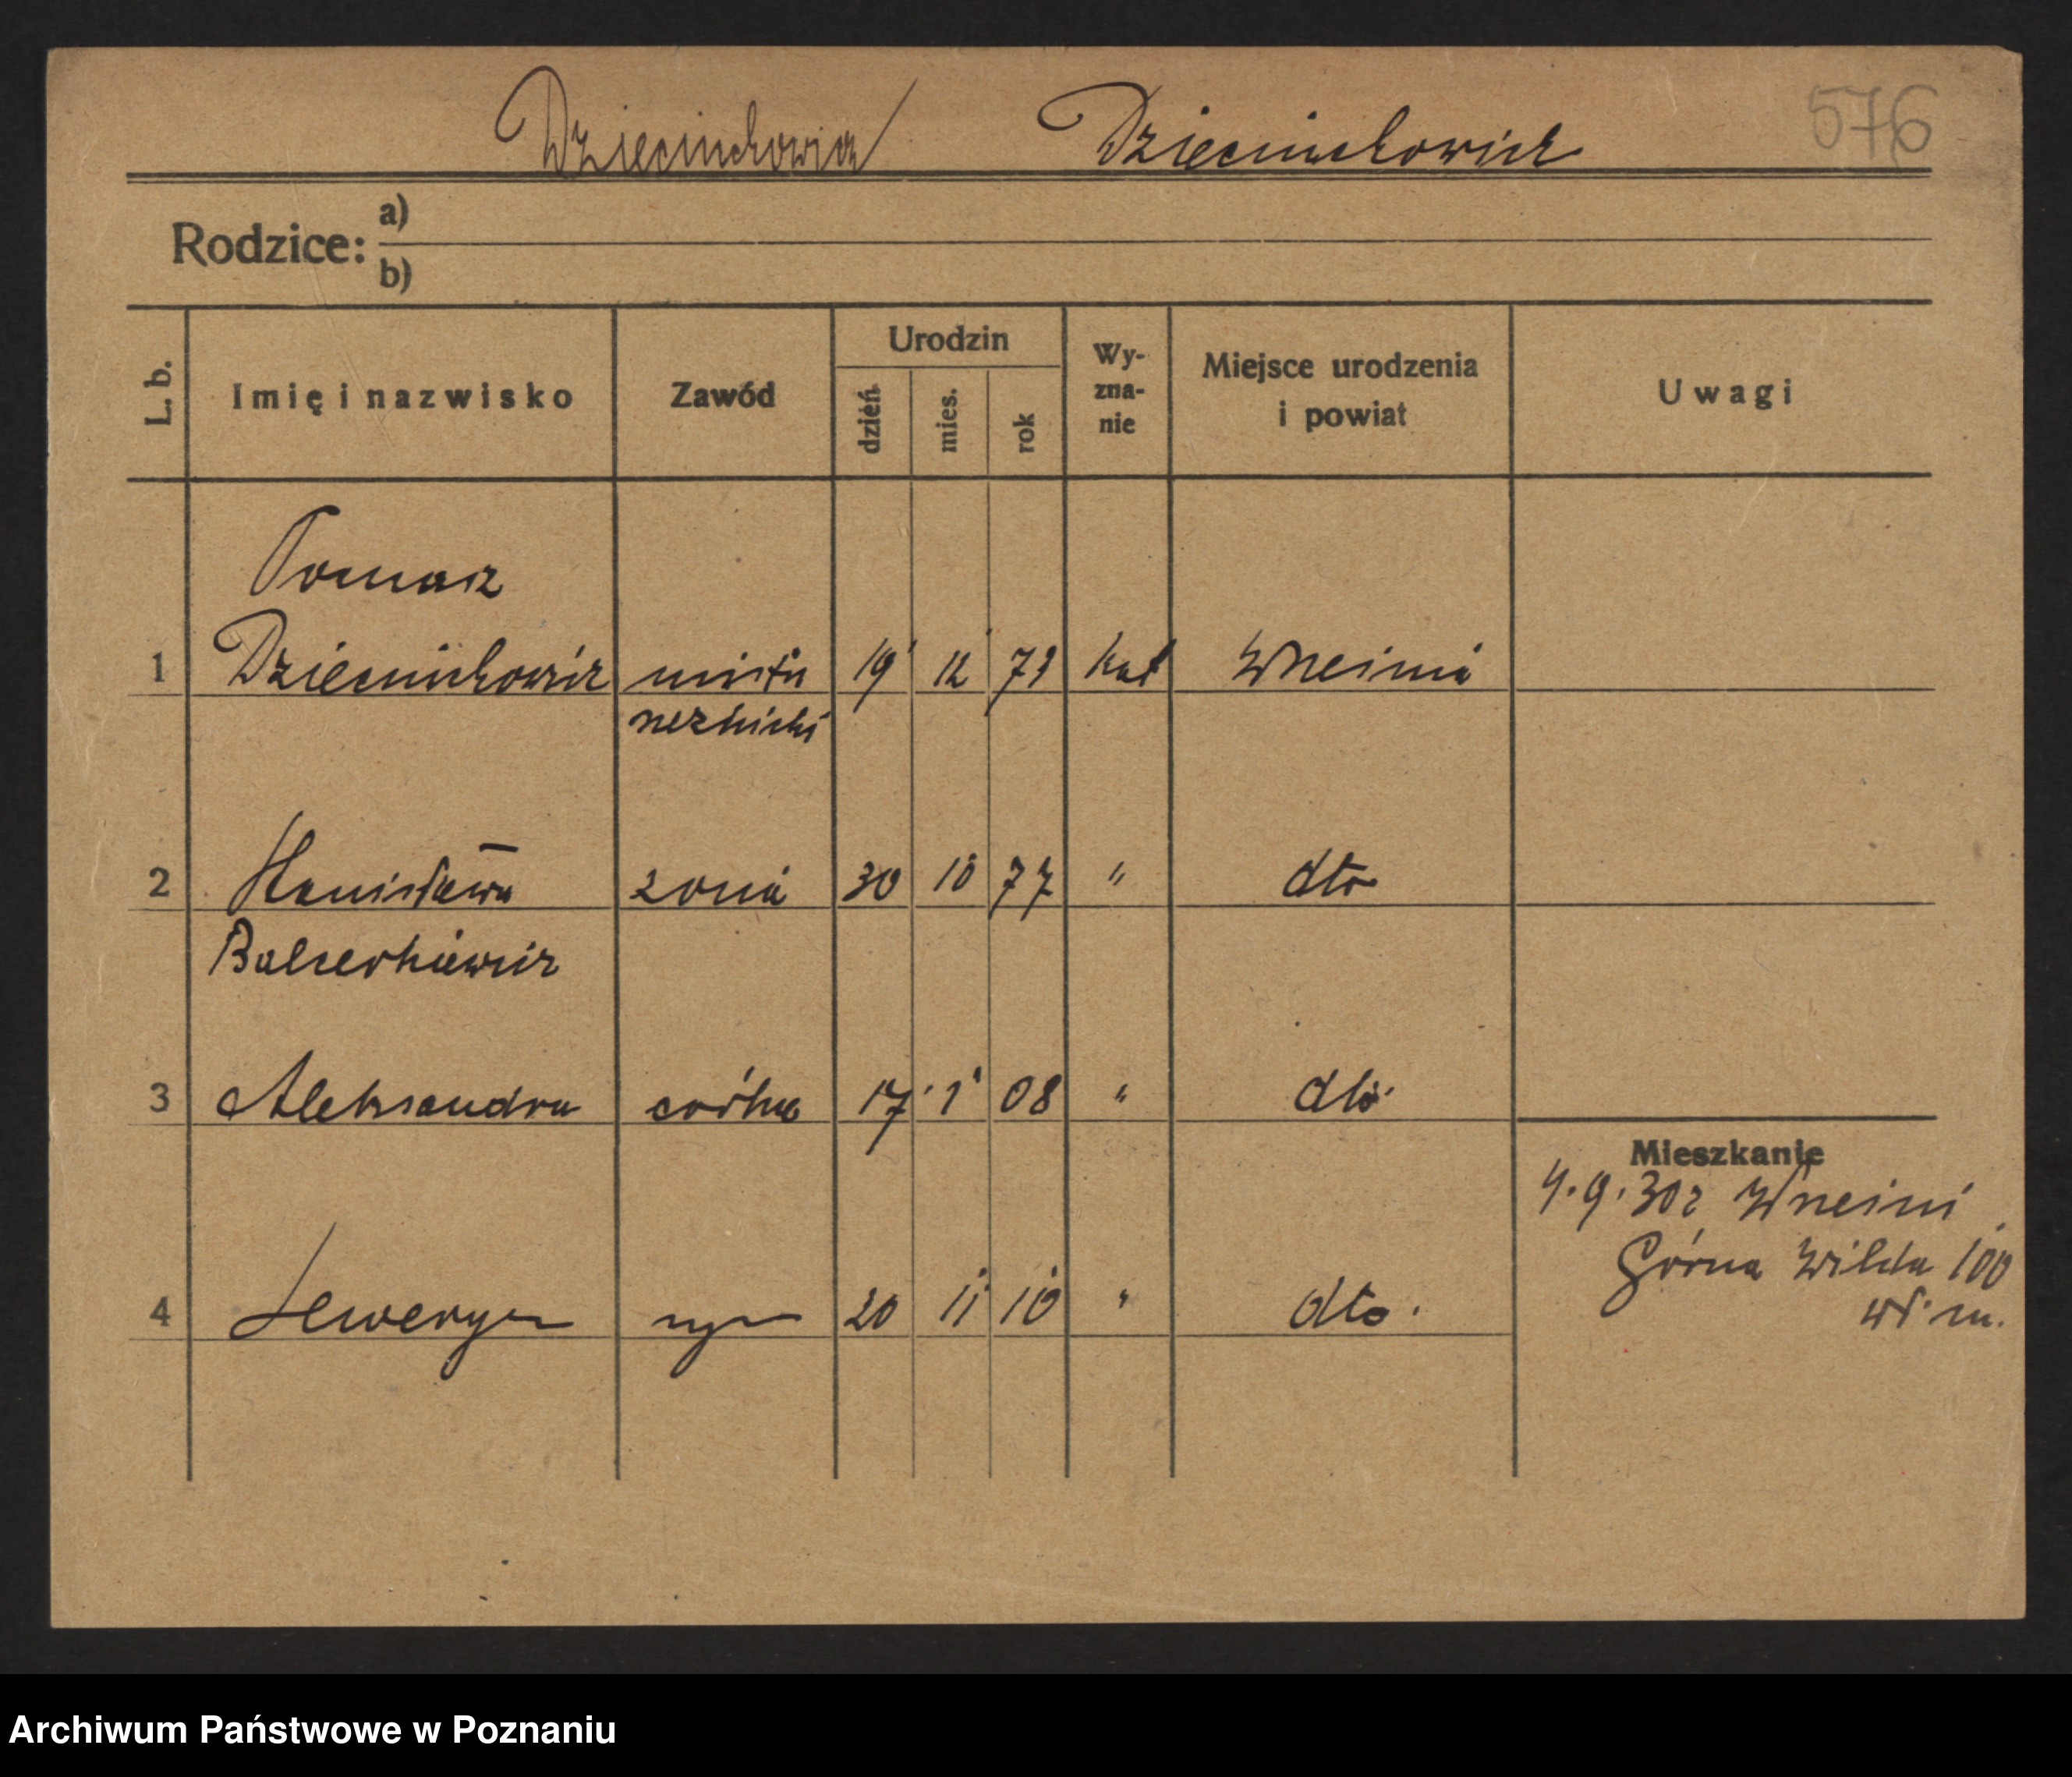 Dzieciuchowicz Dzieciuchowicz 576
Rodzice: a)
b)
L. b. Imię i nazwisko Zawód Urodzin Wy-zna-nie Miejsce urodzenia i powiat Uwagi
dzień mies. rok
Tomasz
1 Dzieciuchowicz mistrz 19 12 79 kat Wrześnía
rzeźnicki
2 Stanisława żona 30 10 77 " dto
Balcerkiewicz
3 Aleksandra córka 17 1 08 " dto
Mieszkanie
4.9.30 z Wrześni
Górna Wilda 100
wł. m.
4 Seweryn syn 20 11 10 " dto.
Archiwum Państwowe w Poznaniu